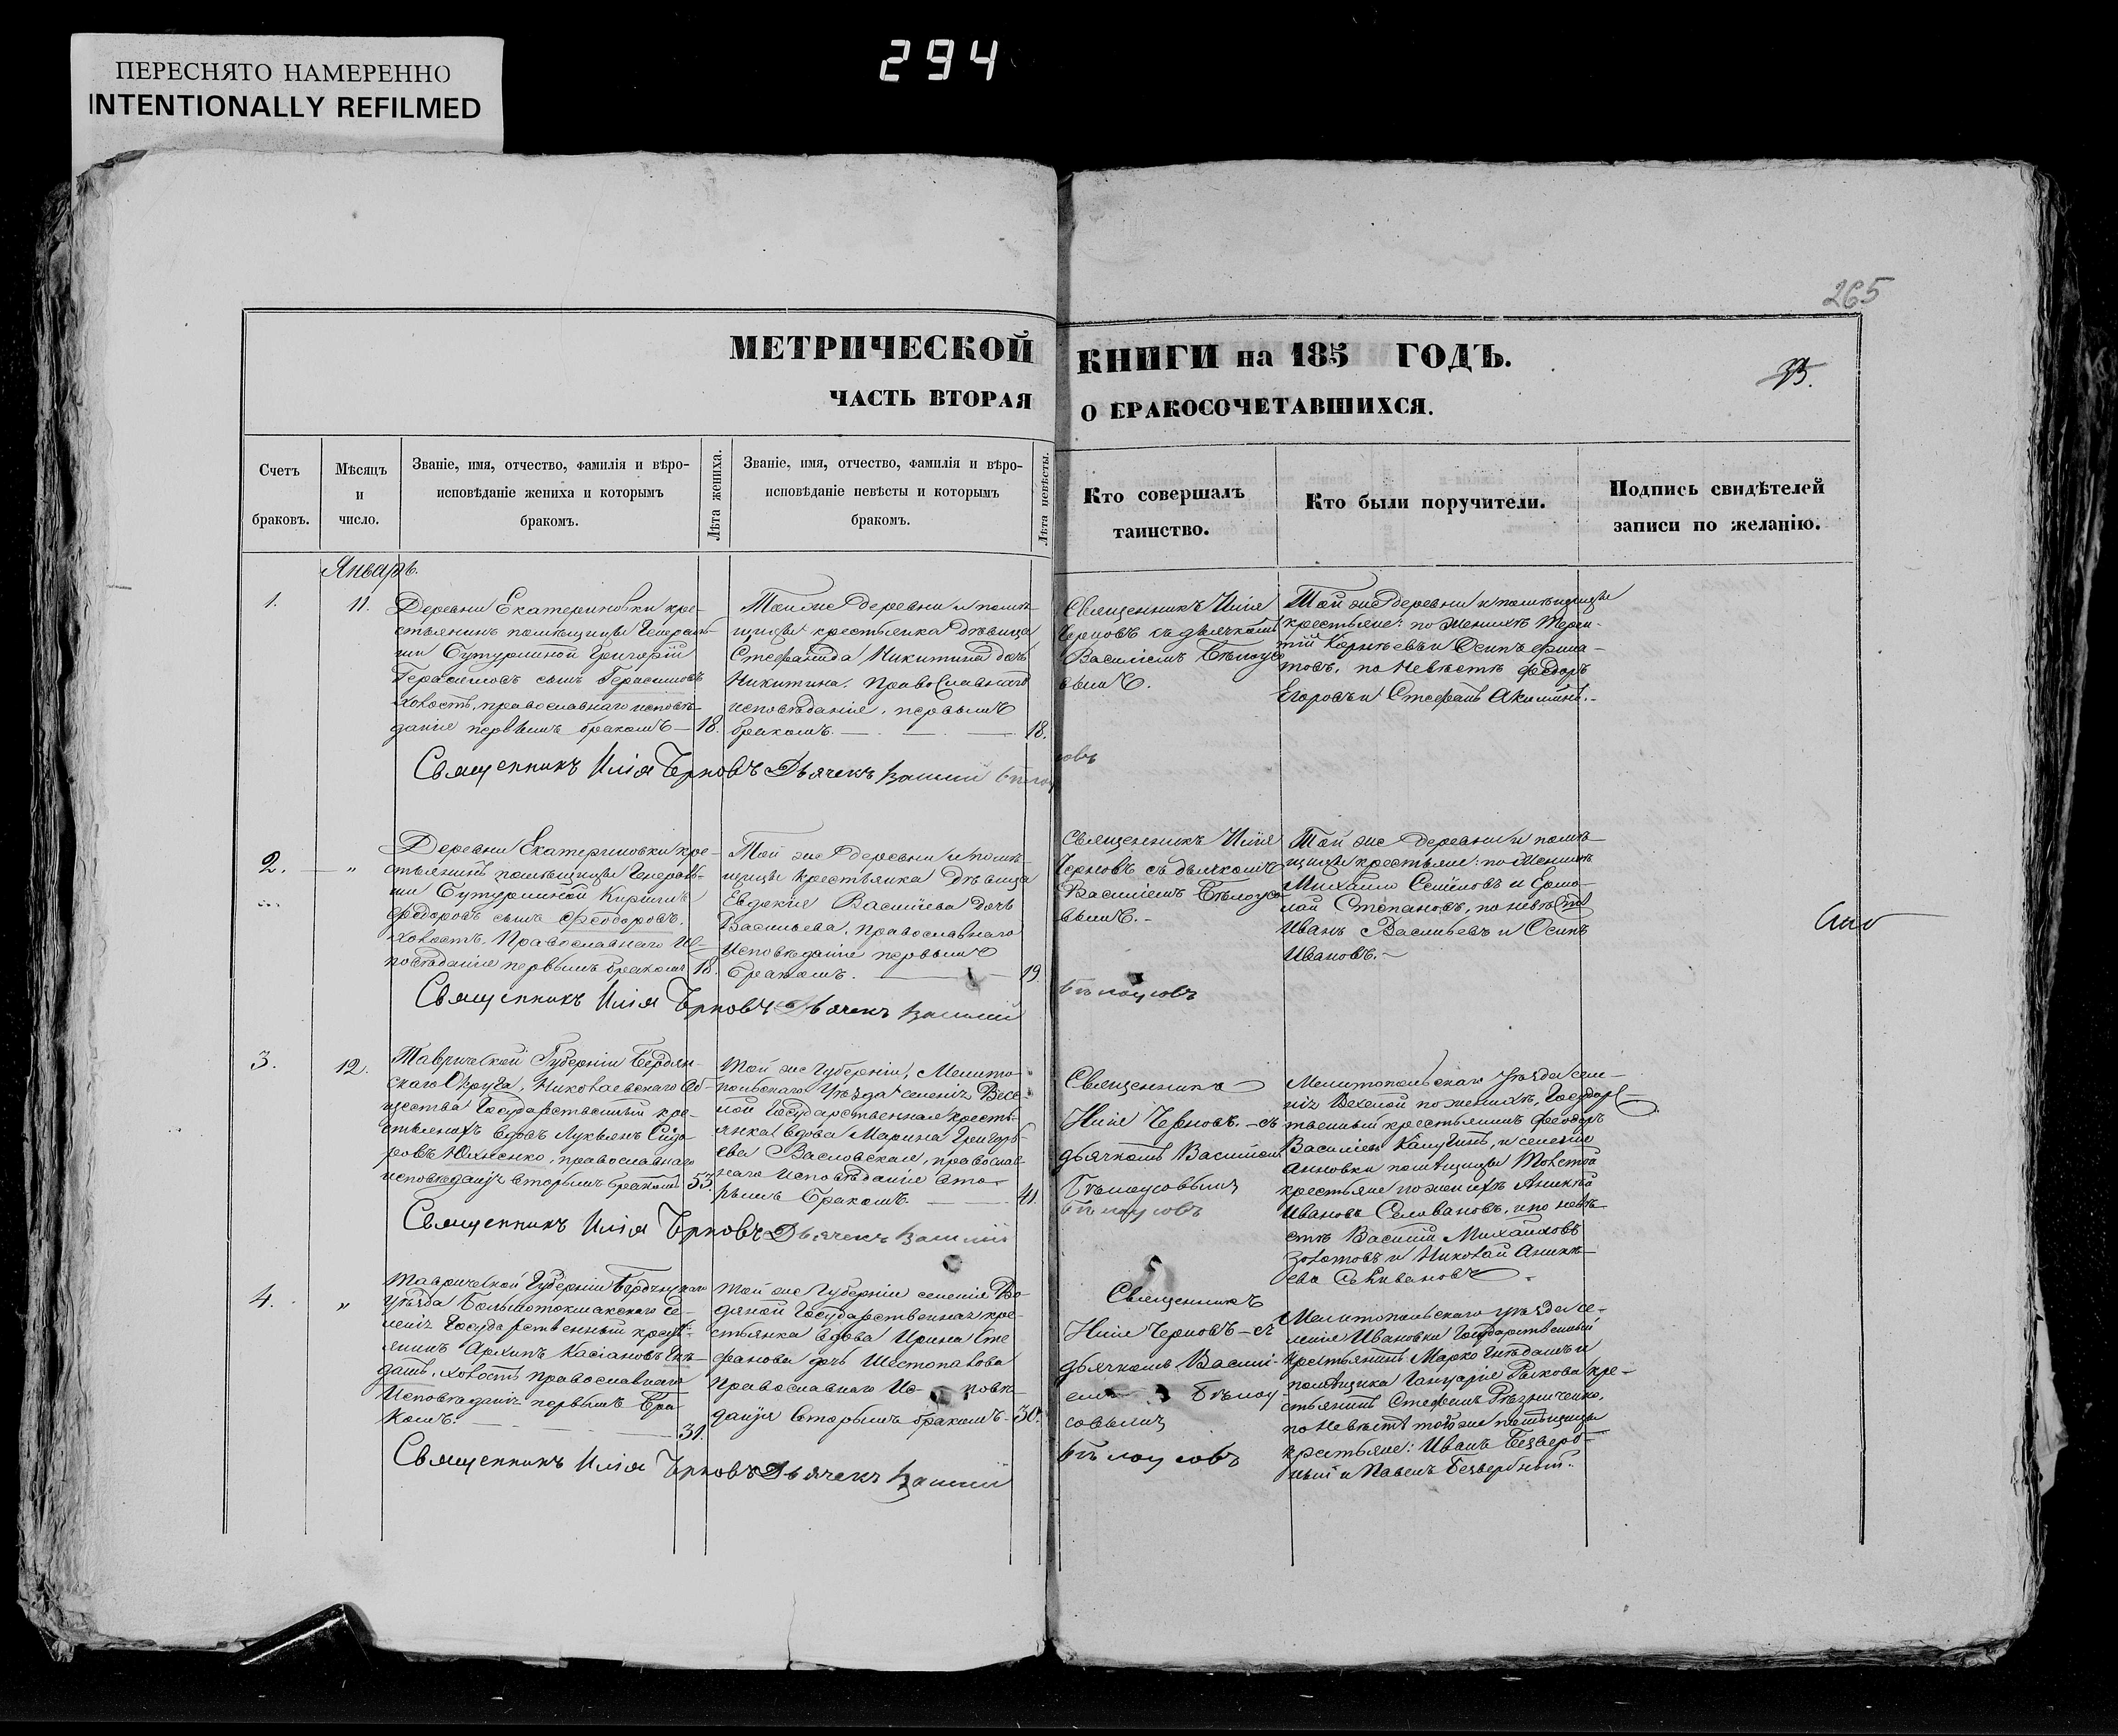 ПЕРЕСНЯТО НАМЕРЕННО
INTENTIONALLY REFILMED
294
265
МЕТРИЧЕСКОЙ КНИГИ на 185 ГОДЪ.
ЧАСТЬ ВТОРАЯ О БРАКОСОЧЕТАВШИХСЯ.
Счетъ
браковъ.
Мѣсяцъ
и
число.
Званіе, имя, отчество, фамилія и вѣро-
исповѣданіе жениха и которымъ
бракомъ.
Лѣта жениха.
Званіе, имя, отчество, фамилія и вѣро-
исповѣданіе невѣсты и которымъ
бракомъ.
Лѣта невѣсты.
Кто совершалъ
таинство.
Кто были поручители.
Подпись свидѣтелей
записи по желанію.
Январь.
1.
11.
Деревни Екатериновки кре-
стьянинъ помѣщицы Генераль-
ши Бутурлиной Григорій
Герасимовъ сынъ Герасимовъ
холостъ, православнаго исповѣ-
данія первымъ бракомъ — 18.
Той же деревни и помѣ-
щицы крестьянка дѣвица
Стефанида Никитина дочь
Никитина. Православнаго
исповѣданія, первымъ
бракомъ. — 18.
Священникъ Илія
Черновъ съ дьячкомъ
Василіемъ Бѣлоусо-
вымъ.
Той же деревни и помѣщицы
крестьяне: по женихѣ Терен-
тій Корнѣевъ и Осипъ
по невѣстѣ Федоръ
Егоровъ и Стефанъ Акимовъ.
Священникъ Илія Черновъ Дьячекъ Василій Бѣлоусовъ
2.
"
Деревни Екатериновки кре-
стьянинъ помѣщицы Генераль-
ши Бутурлиной Кирилъ
Федоровъ сынъ Феодоровъ.
холостъ. Православнаго ис-
повѣданія первымъ бракомъ 18.
Той же деревни и помѣ-
щицы крестьянка дѣвица
Евдокія Васильева дочь
Васильева. Православнаго
исповѣданія первымъ
бракомъ. — 19.
Священникъ Илія
Черновъ съ дьячкомъ
Василіемъ Бѣлоусо-
вымъ. -
Той же деревни и помѣ-
щицы крестьяне: по женихѣ
Михаилъ Семёновъ и Ермо-
лай Степановъ, по невѣстѣ
Иванъ Васильевъ и Осипъ
Ивановъ. -
Священникъ Илія Черновъ Дьячекъ Василій Бѣлоусовъ
3.
12.
Таврической Губерніи Бердян-
скаго Округа, Николаевскаго об-
щества Государственный кре-
стьянинъ вдовъ Лукьянъ Сидо-
ровъ Юхненко, православнаго
исповѣданія вторымъ бракомъ 53.
Той же Губерніи, Мелито-
польскаго Уѣзда селенія Весе-
лой Государственная кресть-
янка вдова Марина Григорь-
ева Василовская, православ-
наго исповѣданія вто-
рымъ бракомъ — 41.
Священникъ
Илія Черновъ. - съ
дьячкомъ Василіемъ
Бѣлоусовымъ
Мелитопольскаго Уѣзда селе-
нія Веселой по женихѣ, Государ-
твенный крестьянинъ Феодоръ
Василіевъ Калугинъ, и селенія
Анновки помѣщицы Толстой
крестьяне по женихѣ Аникѣй
Ивановъ Селивановъ, и по невѣ-
стѣ Василій Михайловъ
Золотовъ и Николай Аникѣ-
евъ Селивановъ.
Священникъ Илія Черновъ Дьячекъ Василій Бѣлоусовъ
4.
"
Таврической Губерніи Бердянскаго
Уѣзда Большотокмакскаго Се-
ленія Государственный кресть-
янинъ Архипъ Касіановъ Гнѣ-
дашъ, холостъ православнаго
исповѣданія первымъ бра-
комъ. — 31.
Той же Губерніи селенія Во-
дяной Государственная кре-
стьянка вдова Ирина Сте-
фанова дочь Шестопалова
Православнаго Испо-вѣ-
данія вторымъ бракомъ - 30.
Священникъ
Илія Черновъ - съ
дьячкомъ Василі-
емъ Бѣлоу-
совымъ
Мелитопольскаго уѣзда се-
ленія Ивановки Государственный
крестьянинъ Марко Гнѣдашъ и
помѣщика Рыкова кре-
стьянинъ Стефанъ Рѣзниченко,
по невѣстѣ той же помѣщицы
крестьяне: Иванъ Безверб-
ный и Павелъ Безвербный.
Священникъ Илія Черновъ Дьячекъ Василій Бѣлоусовъ